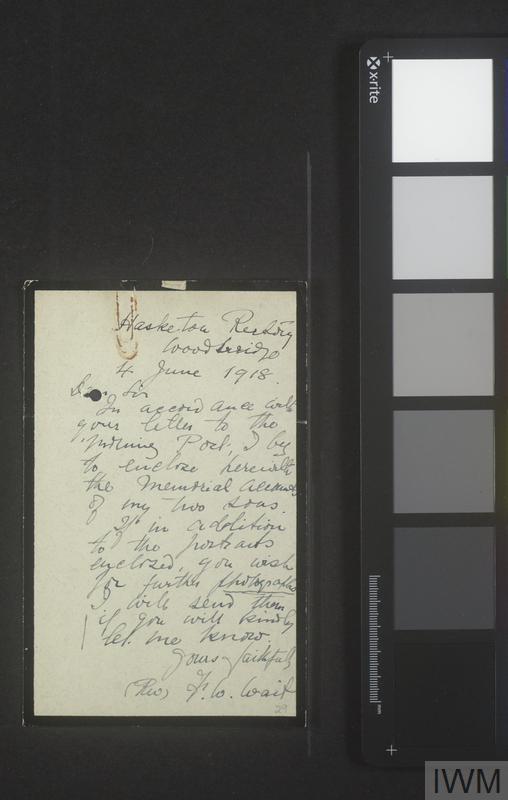 Hasketon Rectory
Woodbridge
4 June 1918.
Dear Sir
In accordance with
your letter to the
Morning Post, I beg
to enclose herewith
the Memorial accounts
of my two sons.
If in addition
to the portraits
enclosed, you wish
for further photographs
I will send them
if you will kindly
let me know.
Yours faithfully
(Rev) F. W. Wait
29
x-rite
mm
IWM